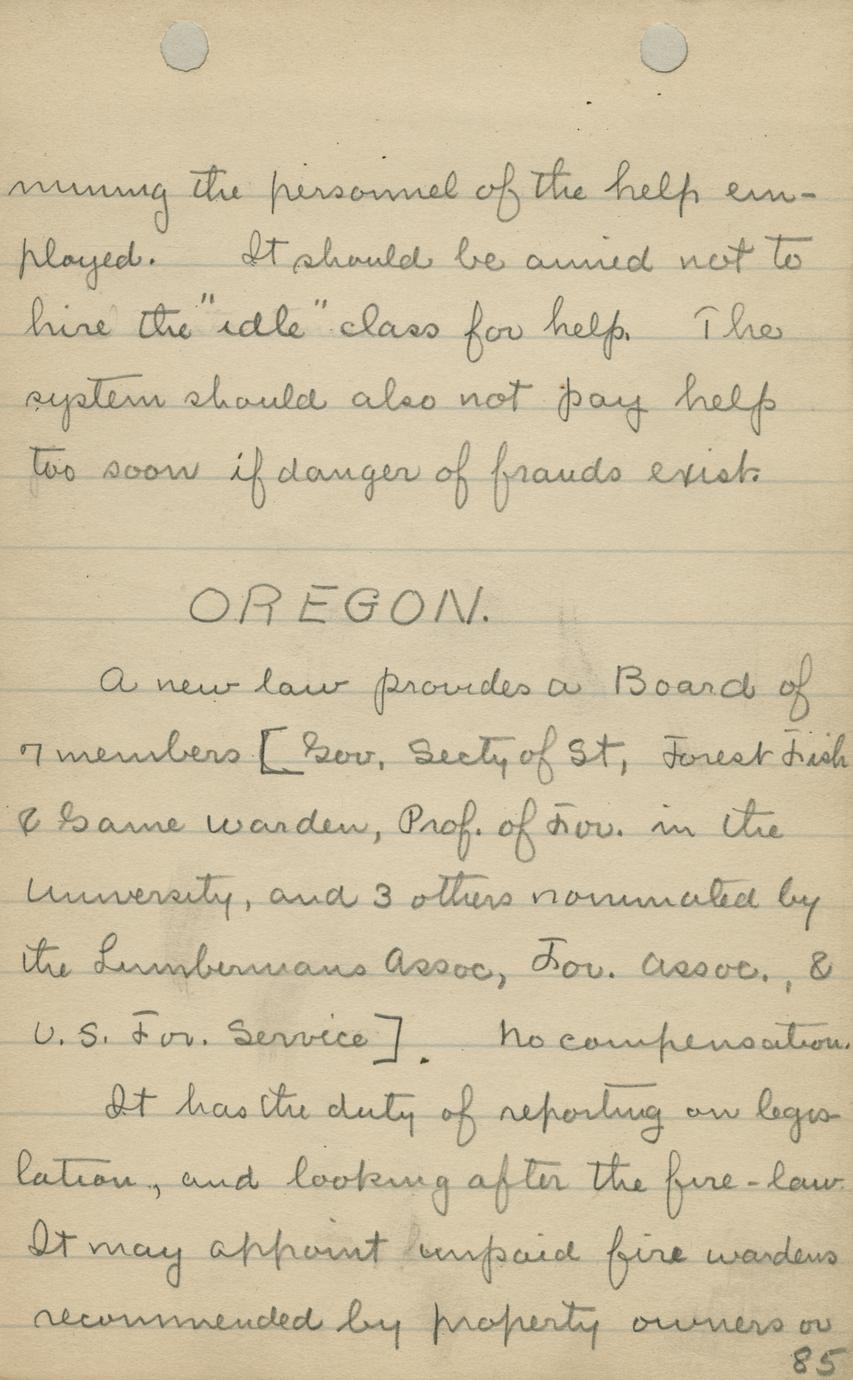 mining the personnel of the help em-
ployed. It should be aimed not to
hire the "idle" class for help. The
system should also not pay help
too soon if danger of frauds exist.
OREGON.
A new law provides a Board of
7 members [Gov, Secty of St, Forest Fish
& Game warden, Prof. of For. in the
University, and 3 others nominated by
the Lumbermans Assoc, For. Assoc., &
U.S. For. Service]. No compensation.
It has the duty of reporting on legis-
lation, and looking after the fire-law.
It may appoint unpaid fire wardens
recommended by property owners or
85